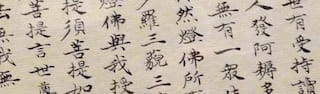 世有受持讀
人發阿耨多
無有一
然燈佛所
羅三藐三
燈佛與我授
提須菩提如
菩提言世
無我無